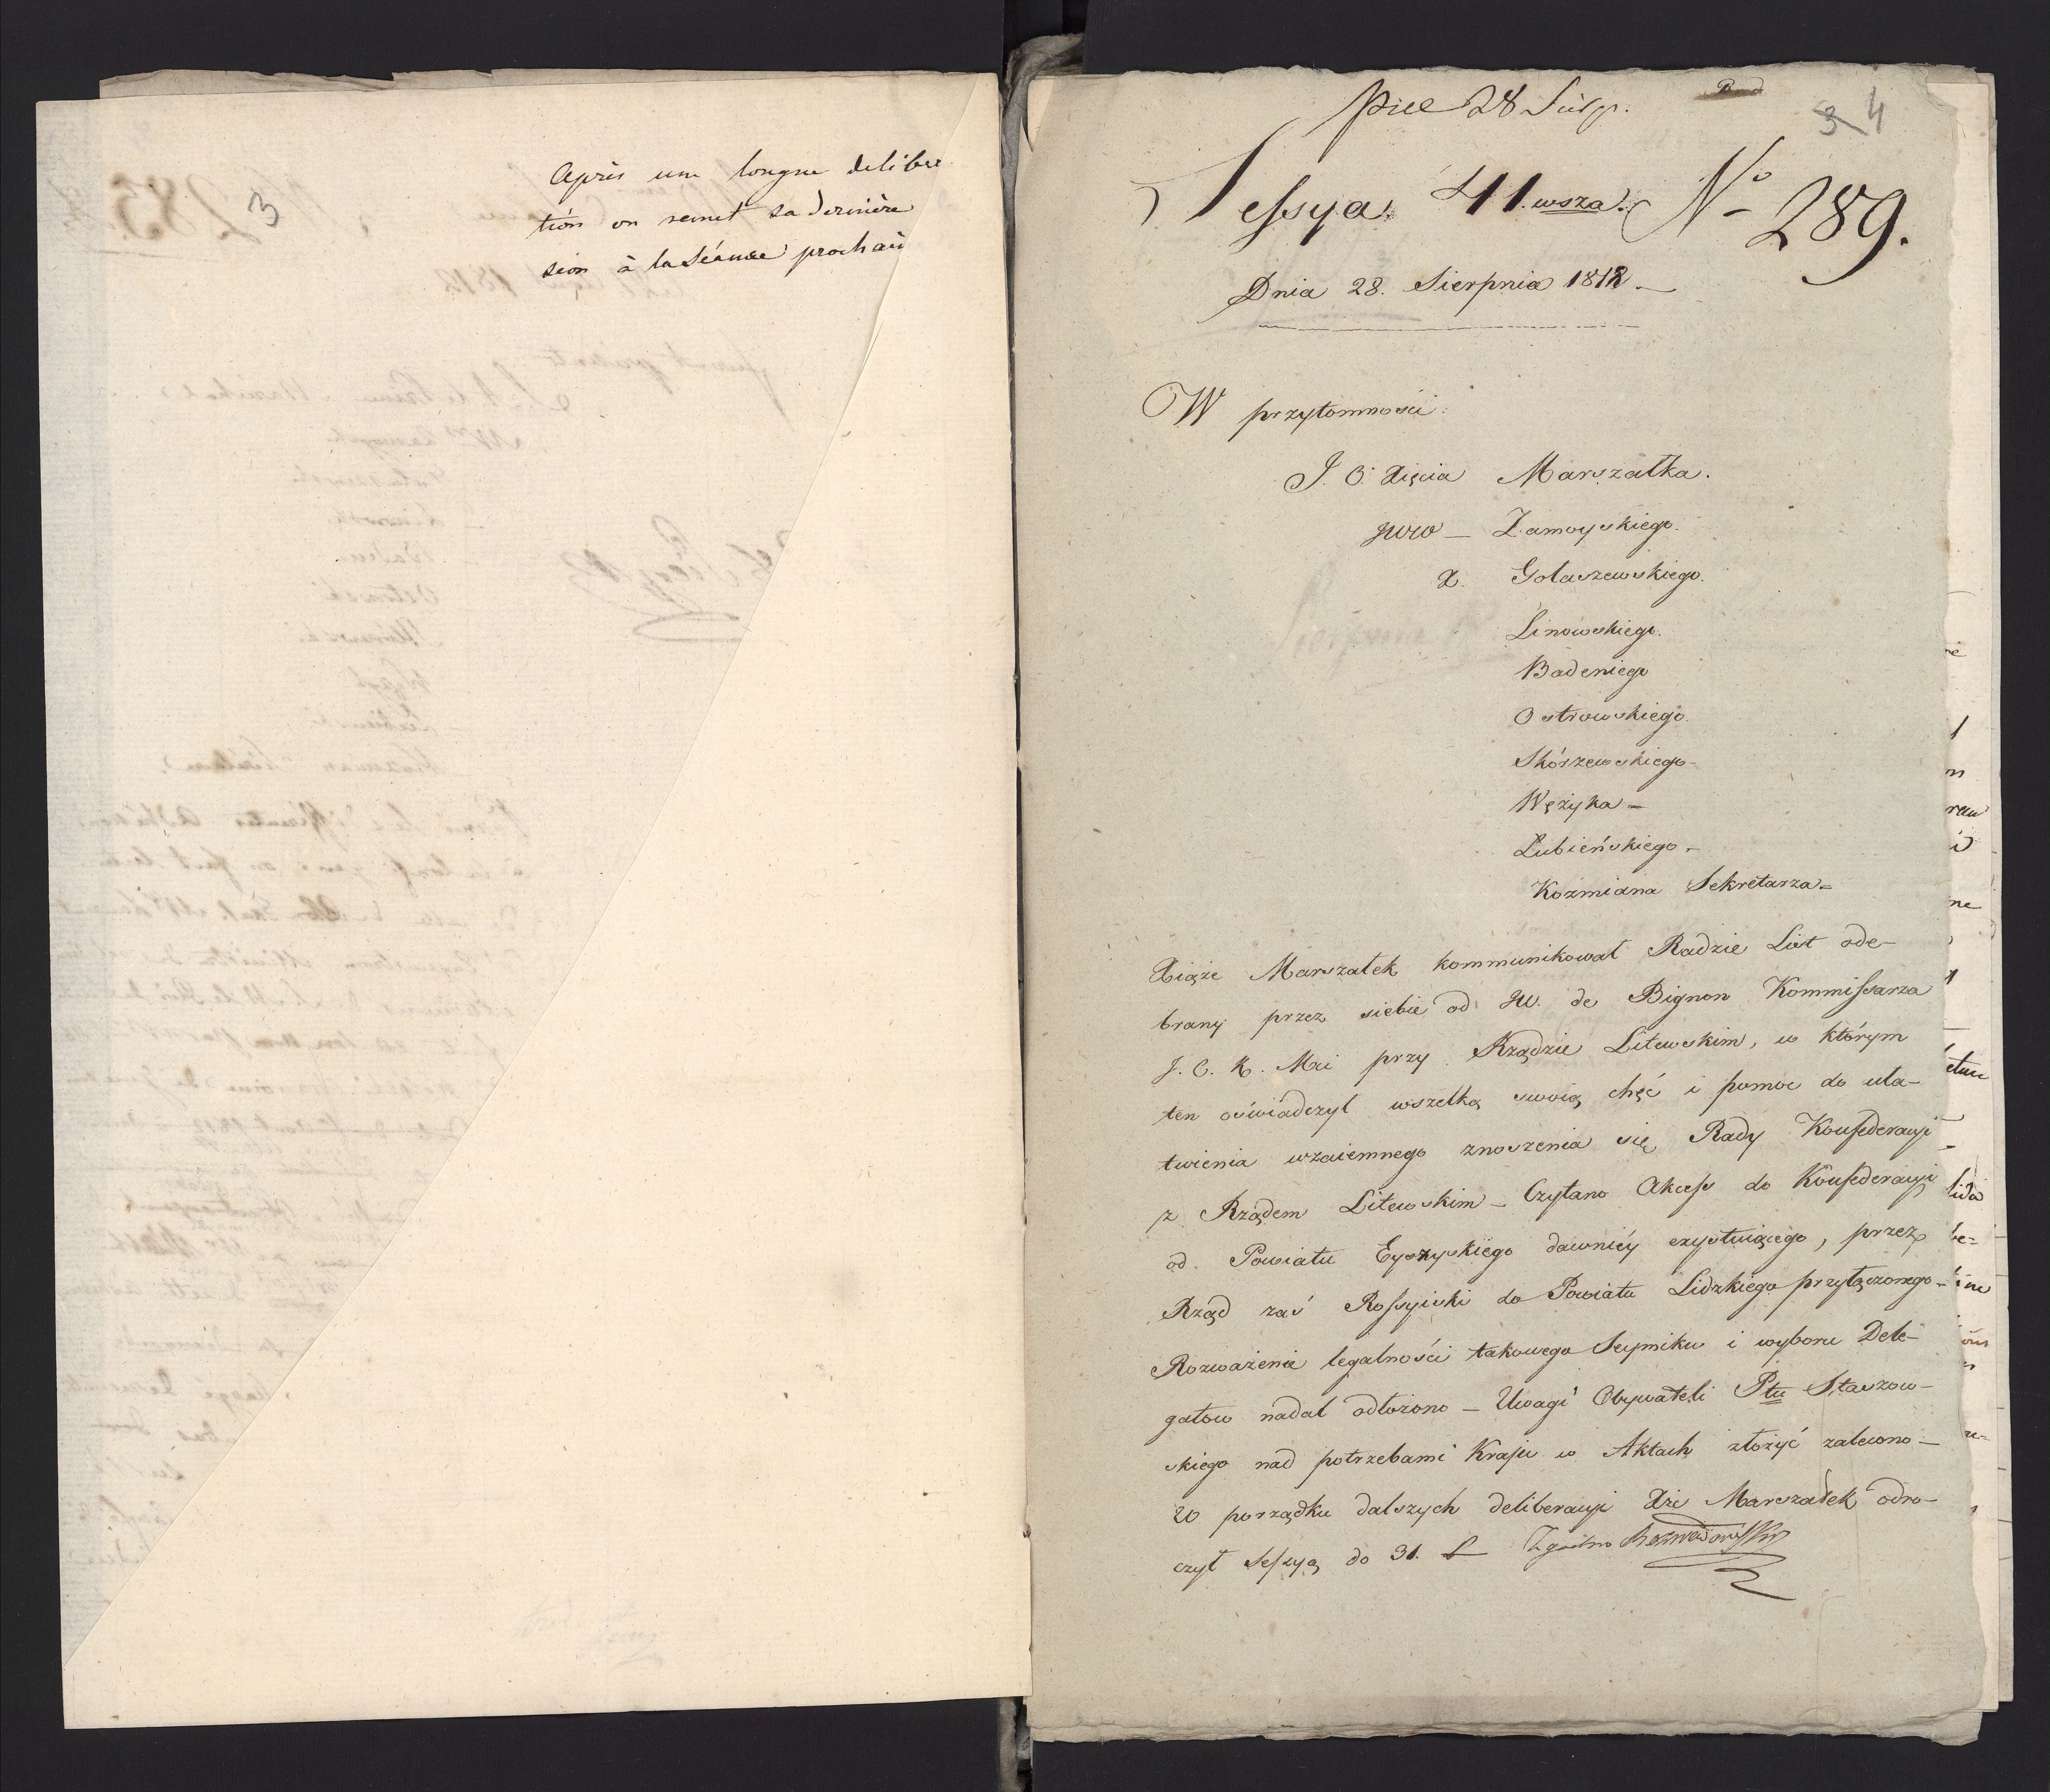 3
Après une longue delibera
tion on remet sa dernière
sion à la Séance prochai
28 Sierp.
3 4
Sessya 41.wsza. No 289.
Dnia 28. Sierpnia 1812 —
W przytomności:
J. O. Xięcia Marszałka.
JWW — Zamoyskiego.
X. Gołaszewskiego.
Linowskiego.
Badeniego
Ostrowskiego.
Skórzewskiego –
Wężyka –
Łubieńskiego –
Kozmiana Sekretarza –
Xiąże Marszałek kommunikował Radzie List ode-
brany przez siebie od JW. de Bignon Kommissarza
J. C. K. Mci przy Rządzie Litewskim, w którym
ten oświadczył wszelką swoią chęć i pomoc do uła-
twienia wzaiemnego znoszenia się Rady Konfederacyi
z Rządem Litewskim – Czytano Akcess do Konfederacyi
od Powiatu Eyszyskiego dawniéy exystuiącego, przez
Rząd zaś Rossyiski do Powiatu Lidzkiego przyłączonego –
Rozważenie legalności takowego Seymiku i wyboru Dele-
gatow nadal odłożono – Uwagi Obywateli Ptu Staszow-
skiego nad potrzebami Kraju w Aktach złożyć zalecono –
W porządku dalszych deliberacyi Xże Marszałek odro-
czył Sessyą do 31. Zgodno